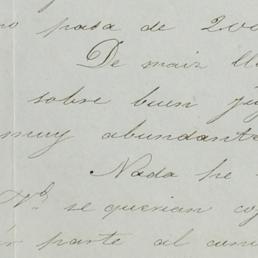 no pasa de 200
De maiz ll
sobre buen
muy abundante
Nada he
Vd se querian co
parte al